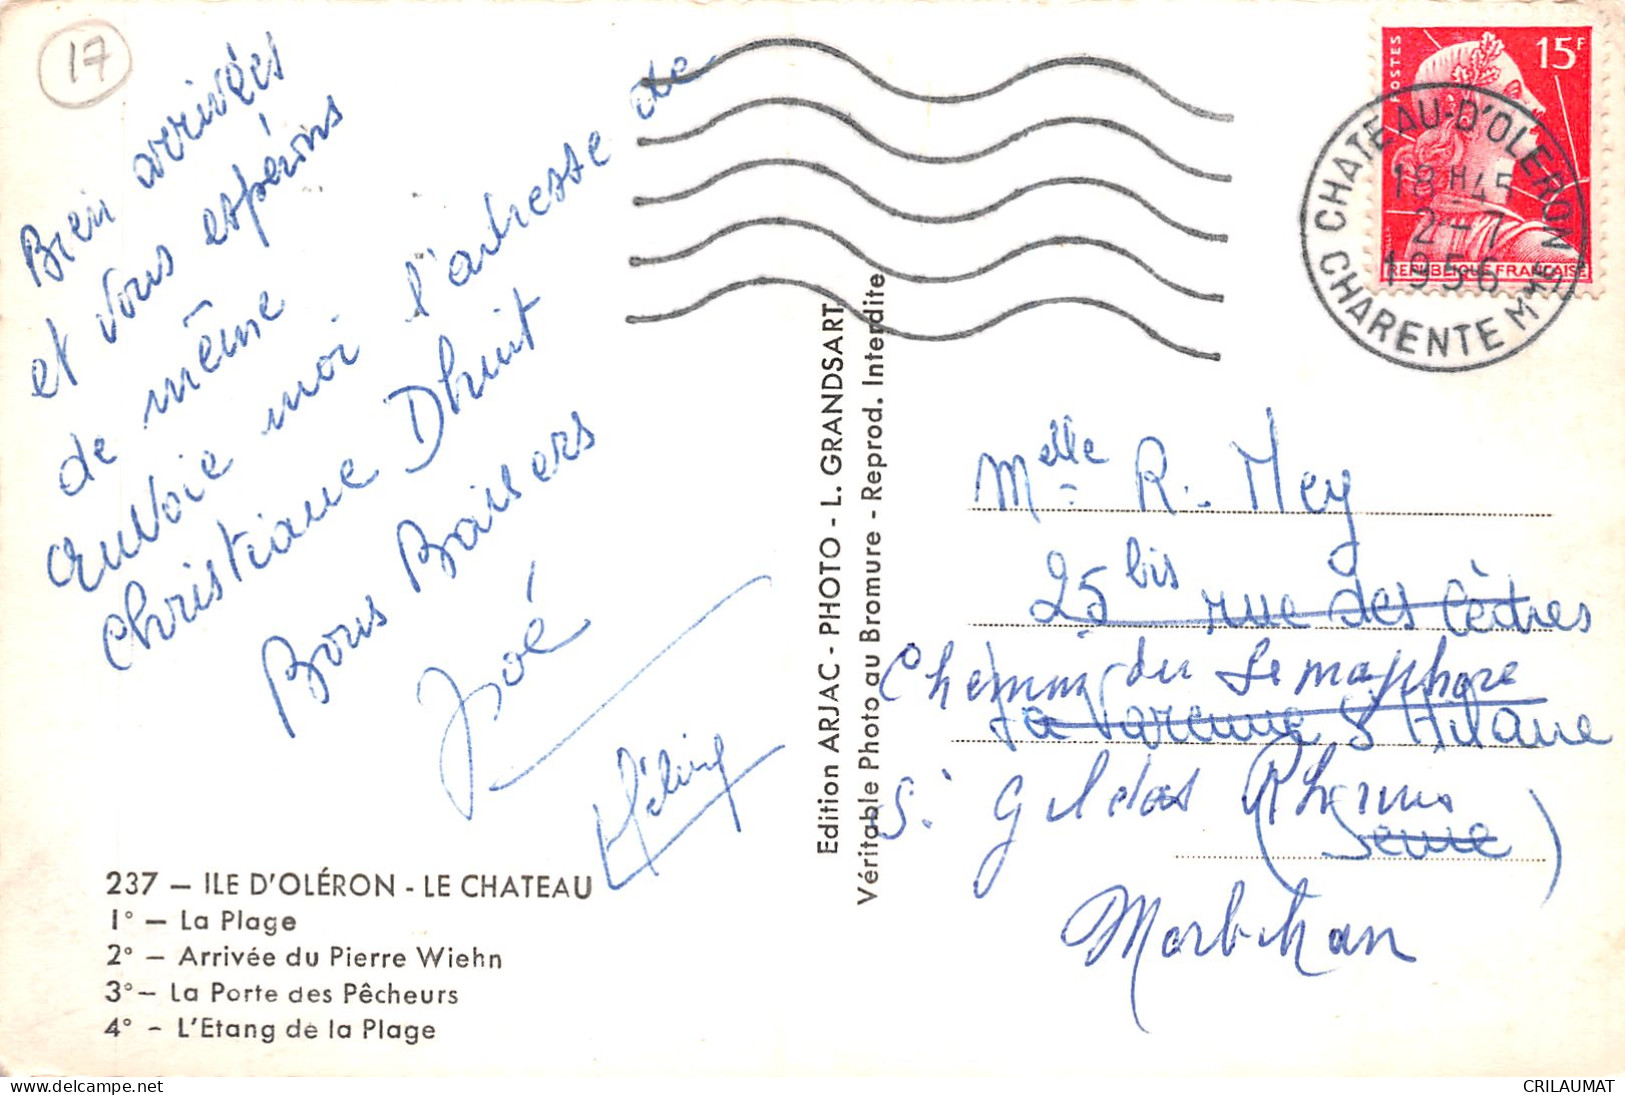 17
Bien arrivées
et vous espérons
de même
Envoie moi l'adresse de
Christiane Dhuit
Bons Baisers
Zoé
237 — ILE D'OLÉRON - LE CHATEAU
1° — La Plage
2° — Arrivée du Pierre Wiehn
3° — La Porte des Pêcheurs
4° - L'Etang de la Plage
Edition ARJAC - PHOTO - L. GRANDSART
Véritable Photo au Bromure - Reprod. Interdite
POSTES
15F
REPUBLIQUE FRANÇAISE
CHATEAU-D'OLERON
18H45
2-7
1956
CHARENTE Mme
Melle R. Mey
25 bis rue des Cèdres
Chemin du Semaphore
La Varenne St Hilaire
St Gildas Rhuis
(Seine)
Morbihan
CRILAUMAT
delcampe.net